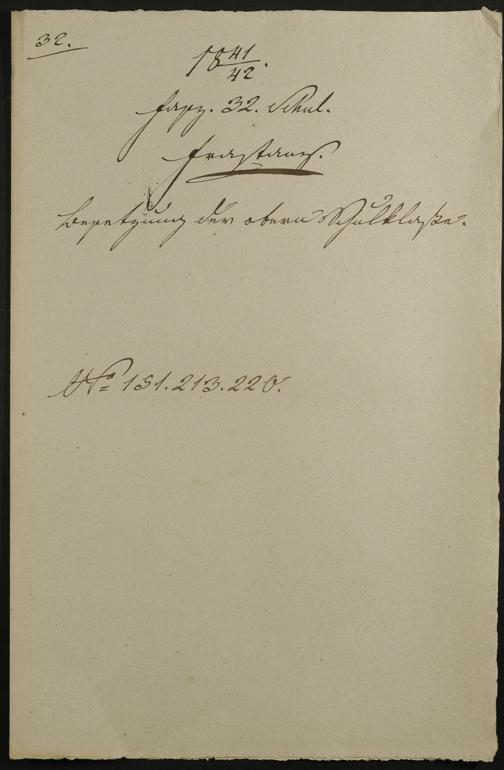 32.
18 41/42.
Fasz. 32. Schul.
Frastanz.
Besetzung der obern Schulklaße.
No 151. 213. 220.